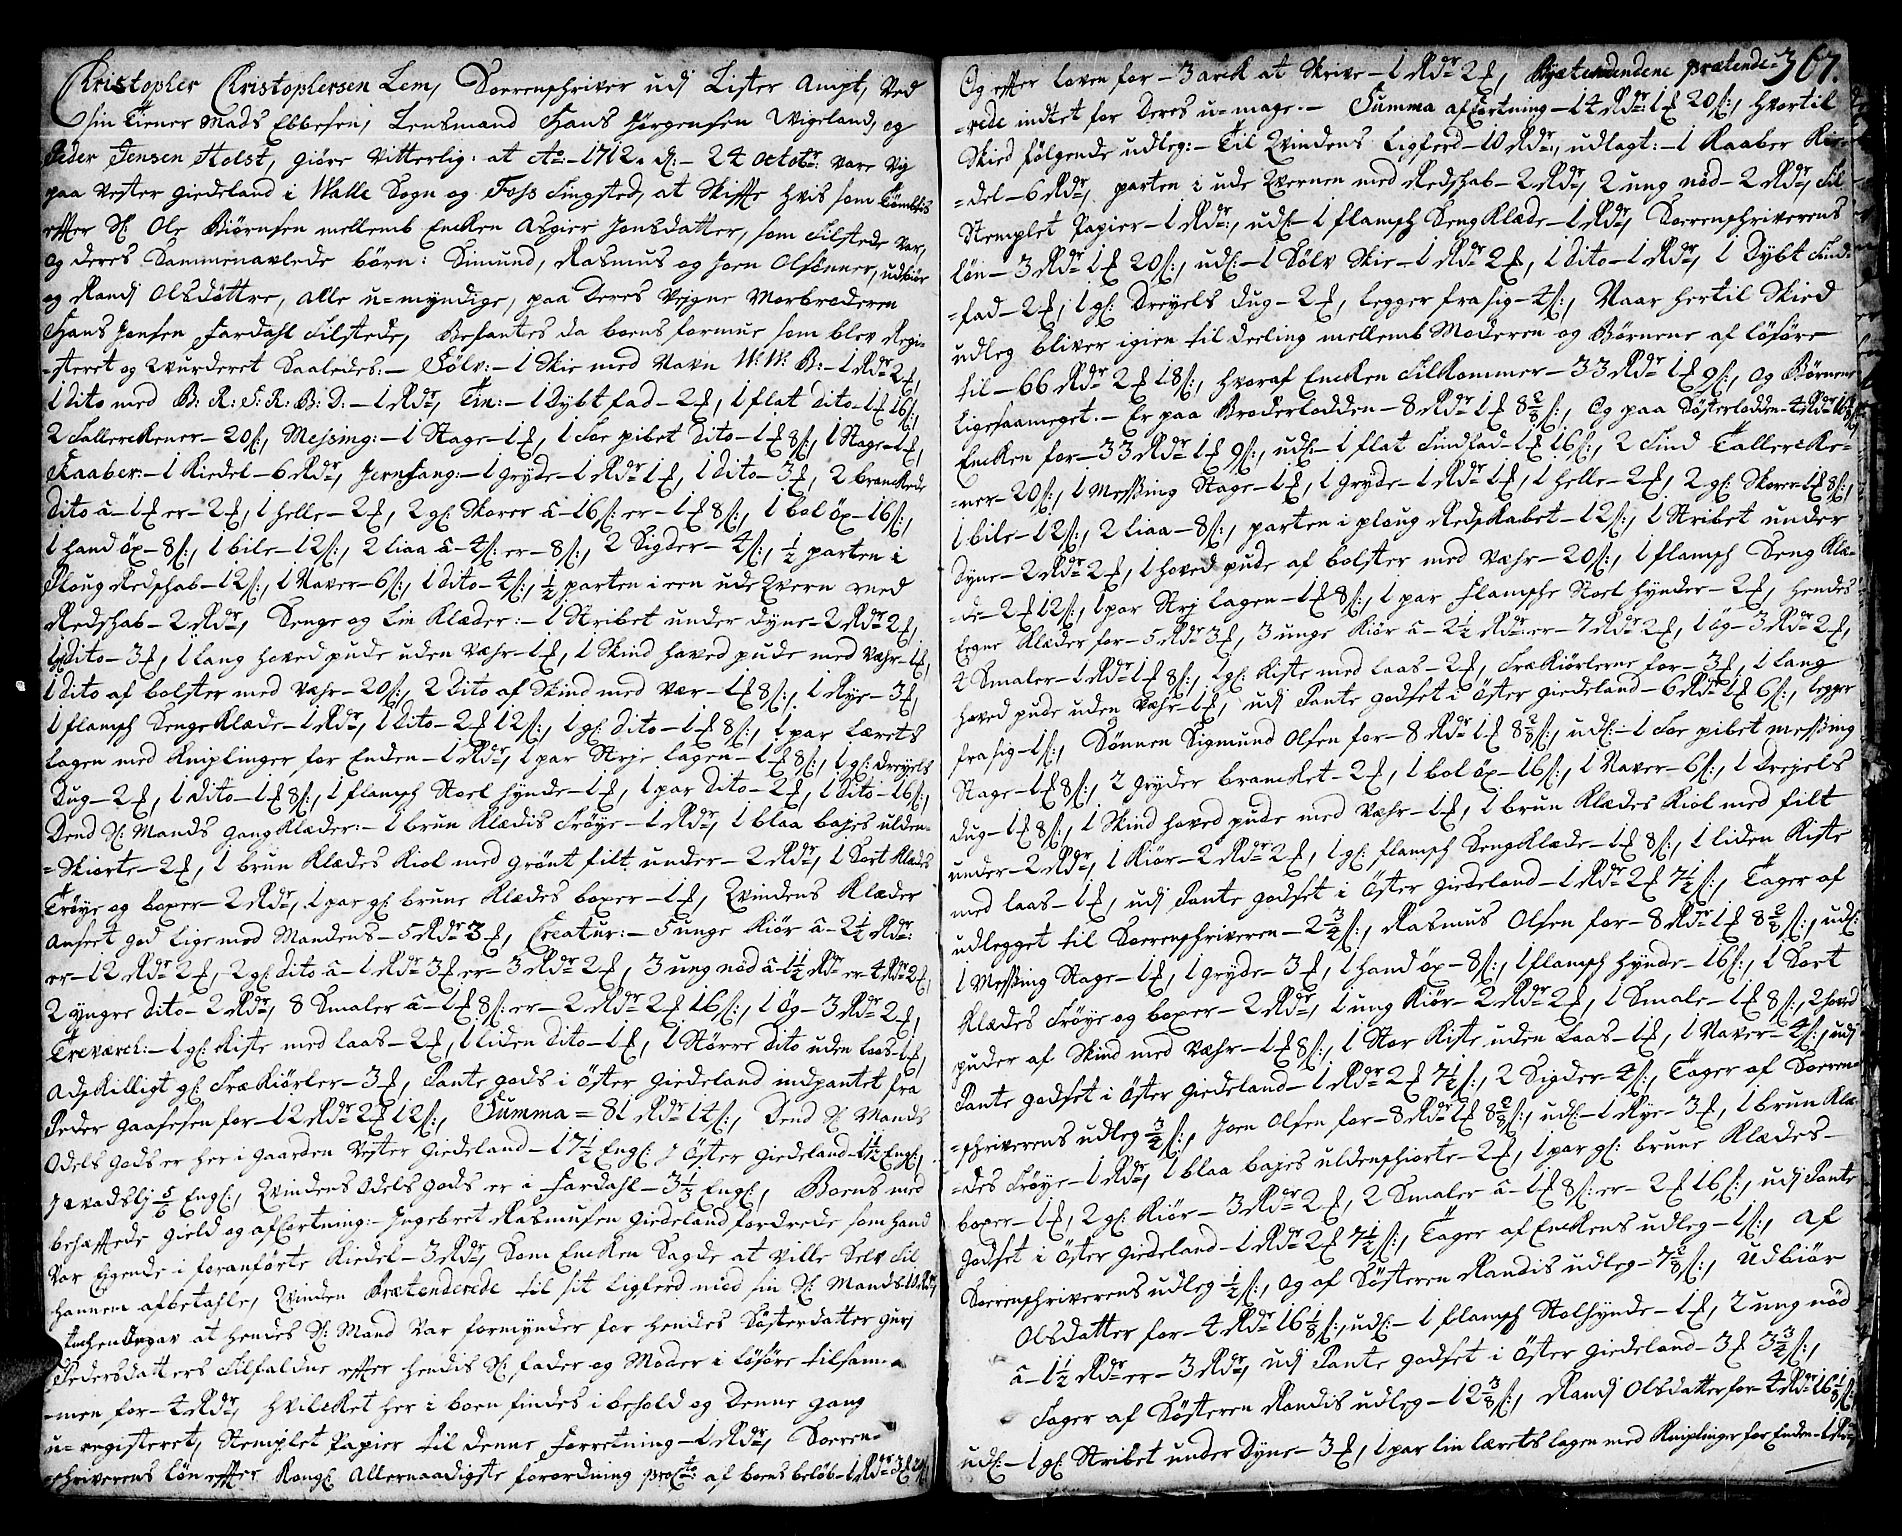 Christopher Christophersen Lem, Sorrenschriver udj Lister Ampt, Ved
sin Tiener Mads Ebbesen, Lensmand Hans Jørgensen Wigeland, og
Peder Jensen Holst, giøre Vitterlig: at Ao. 1712. d: 24 octobr: vare Vj
paa Vester Giedeland i Walle Sogn og Foss Tingsted, at Skiffte hvis som
effter Sl: Ole Biørnsen mellemb Encken Asgier Jonsdatter, som Tilstede var,
og deres Sammenavlede börn: Simund, Rasmus og Joen Olsönner, udbiör
og Randj Olsdöttre, alle u=myndige, paa Deres Vejgne Morbroderen
Hans Jonsen Fardahl Tilstede, Befantes da boens formue som blev Regi-
-steret og Wurderet Saaledes:- Sölv:- 1 Skie med Navn W: W: B:- 1 Rdr 2 £,
1 Dito med B: R: S: R: B: D:- 1 Rdr, Tin:- 1 Dybt fad- 2 £, 1 flat dito- 1 £ 16 s:,
2 Tallerckener- 20 s:, Messing:- 1 Stage- 1 £, 1 Foe pibet Dito- 1 £ 8 s:, 1 Stage- 1 £,
Kaaber:- 1 Kiedel- 6 Rdr, Jernfang:- 1 gryde- 1 Rdr 1 £, 1 dito- 3 £, 2 branckede
Dito a- 1 £ er- 2 £, 1 helle- 2 £, 2 gl: Skorer a- 16 s: er- 1 £ 8 s:, 1 bol öx- 16 s:,
1 hand öx- 8 s:, 1 bile- 12 s:, 2 liaa a- 4 s: er- 8 s:, 2 Sigder- 4 s:, 1/2 parten i
Ploug Redschab- 12 s:, 1 Naver- 6 s:, 1 dito- 4 s:, 1/2 parten i een ude Qvern med
Redschab- 2 Rdr, Senge og Lin Klæder:- 1 Stribet under dyne- 2 Rdr 2 £,
1 gl dito- 3 £, 1 lang hoved pude uden Væhr- 1 £, 1 Skind hoved pude med Væhr- 1 £,
1 dito af bolster med Væhr- 20 s:, 2 dito af Skind med Vær- 1 £ 8 s:, 1 Rye- 3 £,
1 flamsch SengeKlæde- 1 Rdr, 1 dito- 2 £ 12 s:, 1 gl: dito- 1 £ 8 s:, 1 par Lærets
Lagen med Kniplinger for Enden- 1 Rdr, 1 par Strje Lagen- 1 £ 8 s:, 1 gl: Dreyels
Dug- 2 £, 1 dito- 1 £ 8 s:, 1 flamsch Stoel hynde- 1 £, 1 par dito- 2 £, 1 dito- 16 s:,
Dend Sl: Mands gang Klæder:- 1 brun Klædis Tröye- 1 Rdr, 1 blaa bajes ulden-
=Skiorte- 2 £, 1 brun Klædes Kiol med grönt filt under- 2 Rdr, 1 Sort Klædes
Tröye og boxer- 2 Rdr, 1 par gl: brune Klædes boxer- 1 £, Qvindens Klæder
Anseet god lige med Mandens- 5 Rdr 3 £, Creatur:- 5 unge Kiör a- 2 1/2 Rdr:
er- 12 Rdr 2 £, 2 gl: dito a- 1 Rdr 3 £ er- 3 Rdr 2 £, 3 ung nöd a 1 1/2 Rdr er 4 Rdr 2 £,
2 yngre dito- 2 Rdr, 8 Smaler a- 1 £ 8 s: er- 2 Rdr 2 £ 16 s:, 1 Ög- 3 Rdr 2 £,
Treværck:- 1 gl: Kiste med laas- 2 £, 1 liden dito- 1 £, 1 Större dito uden laas- 1 £,
Adskilligt gl: Træ Kiörler- 3 £, Pante gods i Öster Giedeland indpantet fra
Peder Gaasesen for- 12 Rdr 2 £ 12 s:, Summa = 81 Rdr 14 s:, Dend Sl: Mands
Odels gods er her i gaarden Vester Giedeland- 17 1/2 Engl: J Öster Giedeland- 1 1/2 Engl:,
J Avadslj 5/6 Engl:, Qvindens Odels gods er i Fardahl- 3 1/3 Engl:, Boens med
behæffede gield og affortning:- Jngebret Rasmusen Giedeland fordrede som hand
Var Ejgende i foranförte Kiedel- 3 Rdr, Som Encken Sagde at Ville Selv Til
hannem afbetahle, Qvinden Prætenderede til sit ligferd mod sin Sl: Mands- 10 Rdr,
at hendes Sl: Mand Var formynder for hendes Sösterdatter Gurj
Pedersdatters Tilfaldne effter hendis Sl: fader og Moder i löföre tilsam-
-men for- 4 Rdr, hvilcket her i boen findes i behold og Denne gang
u=registeret, Stemplet Papier til denne forretning- 1 Rdr, Soren-
schriverens lön effter Kongl: Allernaadigste forordning procto: af boens belöb- 1 Rdr 3 £
367.
Og effter loven for- 3 arck at Skrive- 1 Rdr 2 £, prætende-
=rede indtet for Deres u=mage.- Summa affortning- 14 Rdr: 1 £ 20 s:, hvortil
Skied fölgende udleg:- Til Qvindens Ligferd- 10 Rdr:, udlagt:- 1 Kaaber Kie-
=del- 6 Rdr, parten i ude Qvernen med Redschab- 2 Rdr, 2 ung nöd- 2 Rdr, Til
Stemplet Papier- 1 Rdr:, udl:- 1 flamsch SengKlæde- 1 Rdr, Sorenschriverens
lön- 3 Rdr 1 £ 20 s:, udl:- 1 Sölv Skie- 1 Rdr 2 £, 1 dito- 1 Rdr, 1 Dybt Tind-
=fad- 2 £, 1 gl: Dreyels Dug- 2 £, legger fra sig- 4 s:, Naar hertil Skied
udleg bliver igien til deeling mellemb Moderen og Börnene af löföre
til- 66 Rdr 2 £ 18 s:, hvoraf Encken Tilkommer- 33 Rdr 1 £ 9 s:, og Börnene
ligesaameget.- Er paa Broderlodden- 8 Rdr 1 £ 8 2/8 s:, og paa Sösterlodden- 4 Rdr 16 1/8 s:
Encken for- 33 Rdr 1 £ 9 s:, udl:- 1 flat Tindfad- 1 £ 16 s:, 2 Tind Tallercke-
=ner- 20 s:, 1 Messing Stage- 1 £, 1 gryde- 1 Rdr 1 £, 1 helle- 2 £, 2 gl: Skorer- 1 £ 8 s:,
1 bile- 12 s:, 2 liaa- 8 s:, parten i ploug Redskabet- 12 s:, 1 Stribet under
dyne- 2 Rdr 2 £, 1 hoved pude af bolster med Væhr- 20 s:, 1 flamsch Seng Klæ-
=de- 2 £ 12 s:, 1 par Strj lagen- 1 £ 8 s:, 1 par flamsche Stoel hynder- 2 £, hendes
Eegne Klæder for- 5 Rdr 3 £, 3 unge Kiör a- 2 1/2 Rdr: er- 7 Rdr 2 £, 1 ög- 3 Rdr 2 £,
4 Smaler- 1 Rdr 1 £ 8 s:, 1 gl: Kiste med laas- 2 £, Træ Kiörlerne for- 3 £, 1 lang
hoved pude uden Væhr- 1 £, udj Pante godset i Öster Giedeland- 6 Rdr 1 £ 6 s:, legger
fra sig- 1 s:, Sönnen Sigmund Olsen for- 8 Rdr 1 £ 8 2/8 s:, udl:- 1 Foe pibet messing
Stage- 1 £ 8 s:, 2 gryder brancket- 2 £, 1 bol öx- 16 s:, 1 Naver- 6 s:, 1 Drejels
dug- 1 £ 8 s:, 1 Skind hoved pude med Væhr- 1 £, 1 brun Klædes Kiol med filt
under- 2 Rdr, 1 Kiör- 2 Rdr 2 £, 1 gl: flamsch SengKlæde- 1 £ 8 s:, 1 liden Kiste
med laas- 1 £, udj Pante godset i Öster Giedeland- 1 Rdr 2 £ 7 1/2 s:, Tager af
udlegget til Sorrenschriveren- 2 3/4 s:, Rasmus Olsen for- 8 Rdr 1 £ 8 2/8 s:, udl:
1 Messing Stage- 1 £, 1 gryde- 3 £, 1 hand öx- 8 s:, 1 flamsch hynde- 16 s:, 1 Sort
Klædes Tröye og boxer- 2 Rdr, 1 ung Kiör- 2 Rdr 2 £, 1 Smale- 1 £ 8 s:, 2 hoved
puder af Skind med Væhr- 1 £ 8 s:, 1 Stor Kiste uden laas- 1 £, 1 Naver- 4 s:, udj
Pante godset i Öster Giedeland- 1 Rdr 2 £ 7 1/2 s:, 2 Sigder- 4 s:, Tager af Sorren-
=schriverens udleg 3/4 s:, Joen Olsen for- 8 Rdr 1 £ 8 2/8 s:, udl:- 1 Rye- 3 £, 1 brun Klæ-
=des Tröye- 1 Rdr, 1 blaa bajes uldenschiorte- 2 £, 1 par gl: brune Klædes-
boxer- 1 £, 2 gl: Kiör- 3 Rdr 2 £, 2 Smaler a- 1 £ 8 s: er- 2 £ 16 s:, udj Pante
godset i Öster Giedeland- 1 Rdr 2 £ 7 1/2 s:, Tager af Enckens udleg- 1 s:, af
Sorrenschriverens udleg 1/2 s:, og af Sösteren Randis udleg- 7 2/8 s:, Udbiör
Olsdatter for- 4 Rdr 16 1/8 s:, udl:- 1 flamsch Stolhynde- 1 £, 2 ung nöd
a- 1 1/2 Rdr er- 3 Rdr, udj Pante godset i Öster Giedeland- 3 £ 3 3/4 s:,
Tager af Sösteren Randis udleg- 12 3/8 s:, Randj Olsdatter for- 4 Rdr 16 1/8 s:
udl:- 1 gl: Stribet under Dyne- 3 £, 1 par lin lærets lagen med Kniplinger for Enden- 1 Rdr,